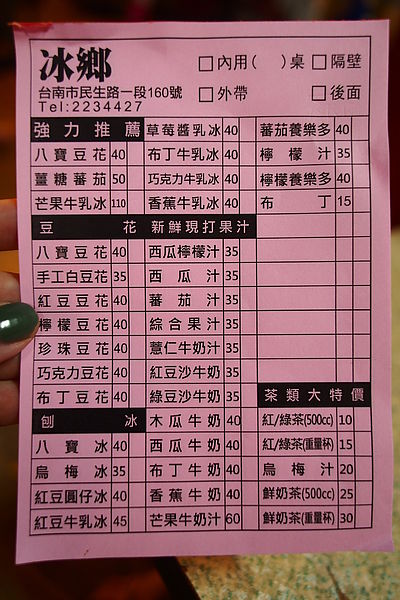 冰鄉
□內用( )桌 □隔壁
台南市民生路一段160號 □外帶 □後面
Tel:2234427
強力推薦 草莓醬乳冰 40 蕃茄養樂多 40
八寶豆花 40 布丁牛乳冰 40 檸檬汁 35
薑糖蕃茄 50 巧克力牛乳冰 40 檸檬養樂多 40
芒果牛乳冰 110 香蕉牛乳冰 40 布丁 15
豆花 新鮮現打果汁
八寶豆花 40 西瓜檸檬汁 35
手工白豆花 35 西瓜汁 35
紅豆豆花 40 蕃茄汁 35
檸檬豆花 40 綜合果汁 35
珍珠豆花 40 薏仁牛奶汁 35
巧克力豆花 40 紅豆沙牛奶 35
布丁豆花 40 綠豆沙牛奶 35 茶類大特價
刨冰 木瓜牛奶 40 紅/綠茶(500cc) 10
八寶冰 40 西瓜牛奶 40 紅/綠茶(重量杯) 15
烏梅冰 35 布丁牛奶 40 烏梅汁 20
紅豆圓仔冰 40 香蕉牛奶 40 鮮奶茶(500cc) 25
紅豆牛乳冰 45 芒果牛奶汁 60 鮮奶茶(重量杯) 30